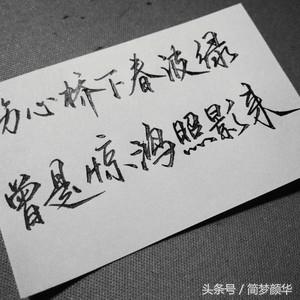 伤心桥下春波绿
曾是惊鸿照影来
头条号 / 简梦颜华